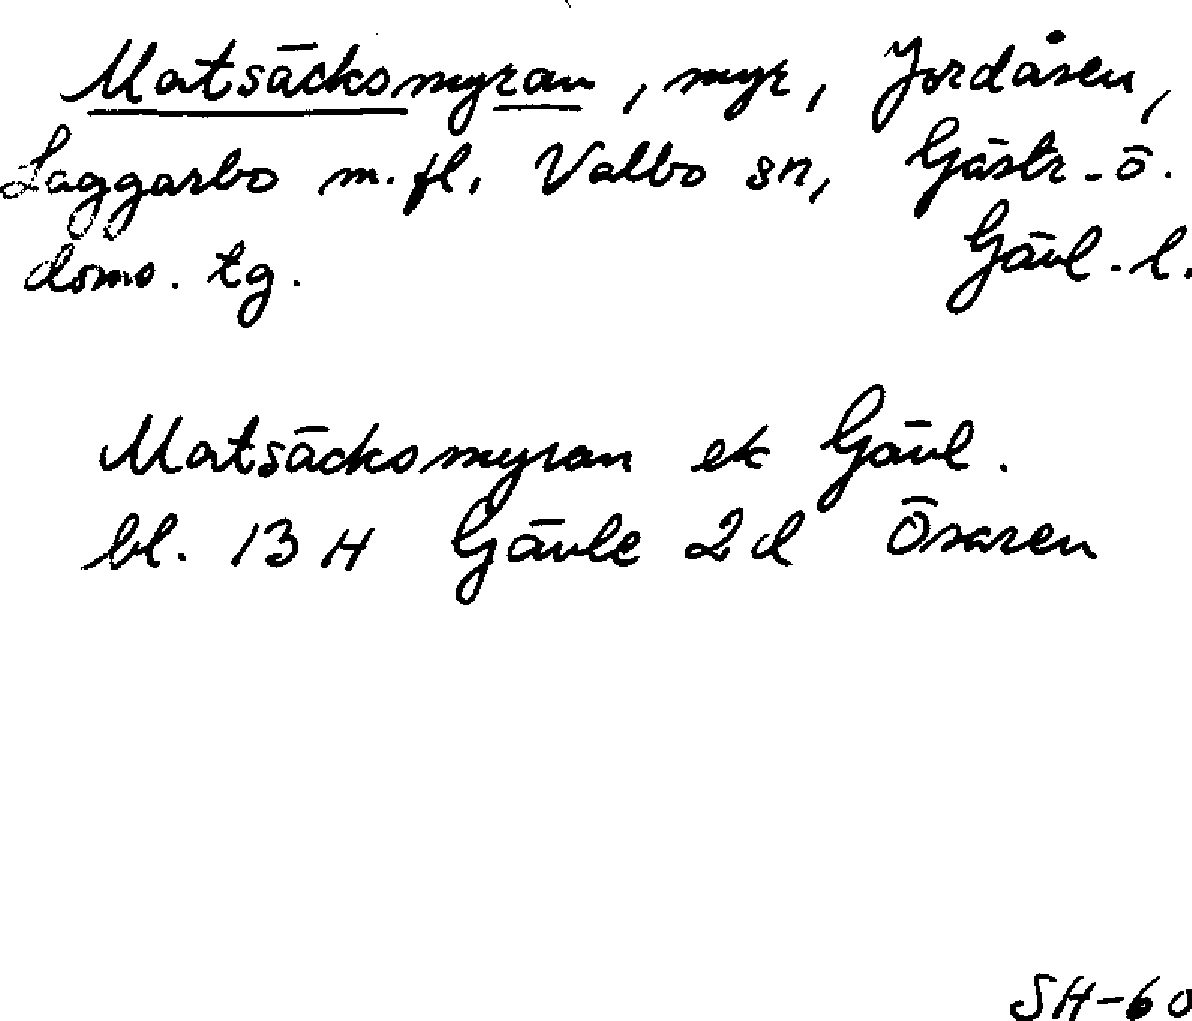 Matsäcksmyran, myr, Jordåsen,
Laggarbo m.fl. Valbo sn, Gästr-ö.
doms. tg. Gävl. l.
Matsäcksmyran ek Gävl.
bl. 13 H Gävle 2d Ösaren
SH-60